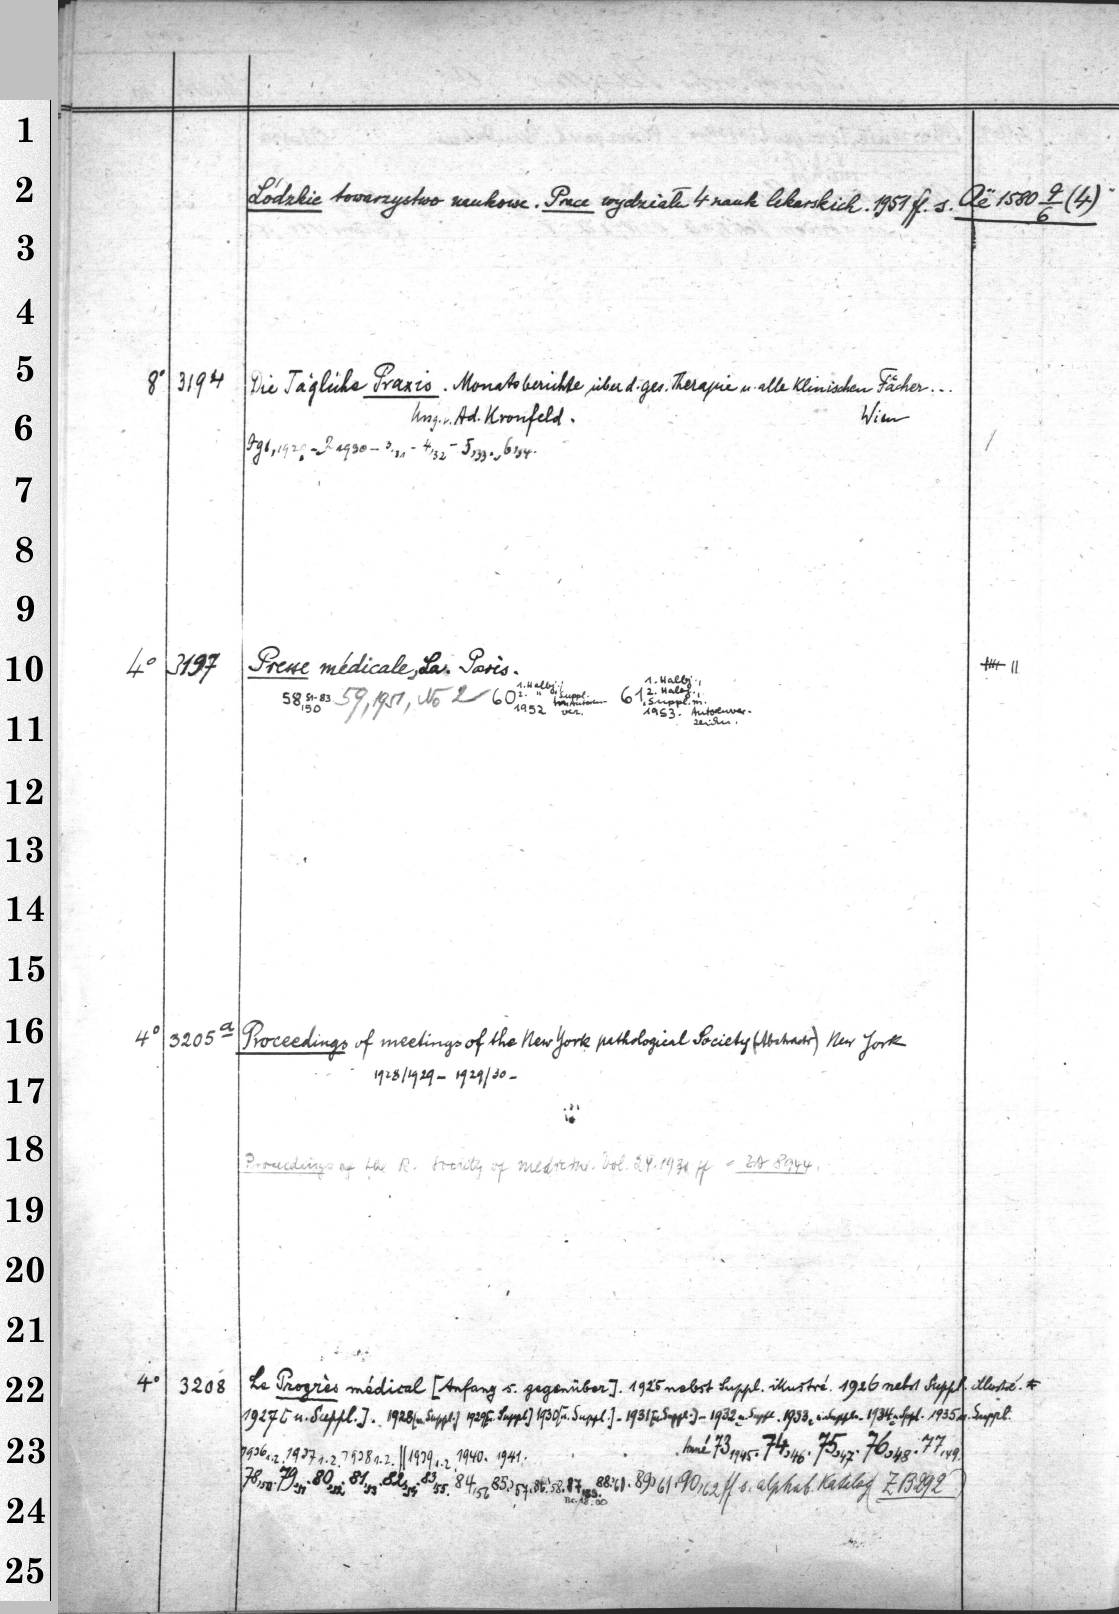 1
2
Łódzkie towarzystwo naukowe. Prace wydziału 4 nauk lekarskich. 1951 ff. s. Aë 1580 9/6 (4)
3
4
5
8° 3194 Die Tägliche Praxis. Monatsberichte über d. ges. Therapie u. alle klinischen Fächer...
6
Hrsg. v. Ad. Kronfeld. Wien
Jg 1,1929 - 2 1930 - 3,31 - 4,32 - 5,33 - 6,34.
7
8
9
10
4° 3197 Presse médicale, La. Paris.
58, 51-83 50 59, 1951, No 2 60 1. Halbj., 2. " , Suppl. Autoren ver. 1952 61 1. Halbj., 2. Halbj., Suppl. m. Autorenver-zeichn. 1953.
11
12
13
14
15
16
4° 3205a Proceedings of meetings of the New York pathological Society (Abstracts) New York
17
1928/1929 - 1929/30 -
18
Proceedings of the R. Society of medicine. Vol. 24.1931 ff = ZA 8944.
19
20
21
22
4° 3208 Le Progrès médical [Anfang s. gegenüber]. 1925 nebst Suppl. illustré. 1926 nebst Suppl. illustré. *
1927 [u. Suppl.]. 1928 [u. Suppl.] 1929 [u. Suppl.] 1930 [u. Suppl.] - 1931 [u. Suppl.] - 1932 u. Suppl. 1933 u. Suppl. 1934 u. Suppl. 1935 u. Suppl.
23
1936 1.2. 1937 1.2. 1938 1.2. || 1939 1.2. 1940. 1941. Année 73 1945. 74,46. 75,47. 76,48. 77,49.
78,50. 79,51. 80,52. 81,53. 82,54. 83,55. 84,56 85,57. 86,58. 87 88. 61. 89 61. 90,62 ff s. alphab. Katalog (ZB 292)
24
25